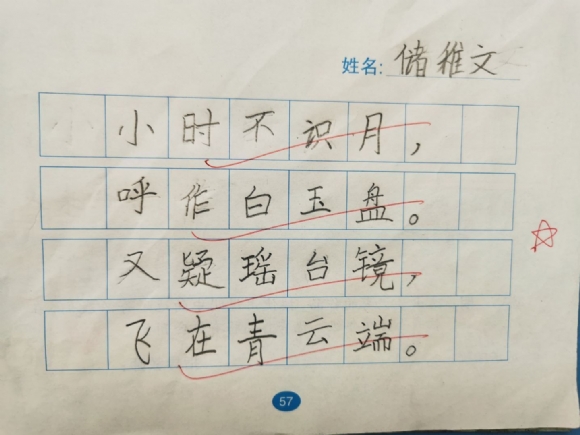 姓名: 储稚文
小时不识月，
呼作白玉盘。
又疑瑶台镜，
飞在青云端。
57